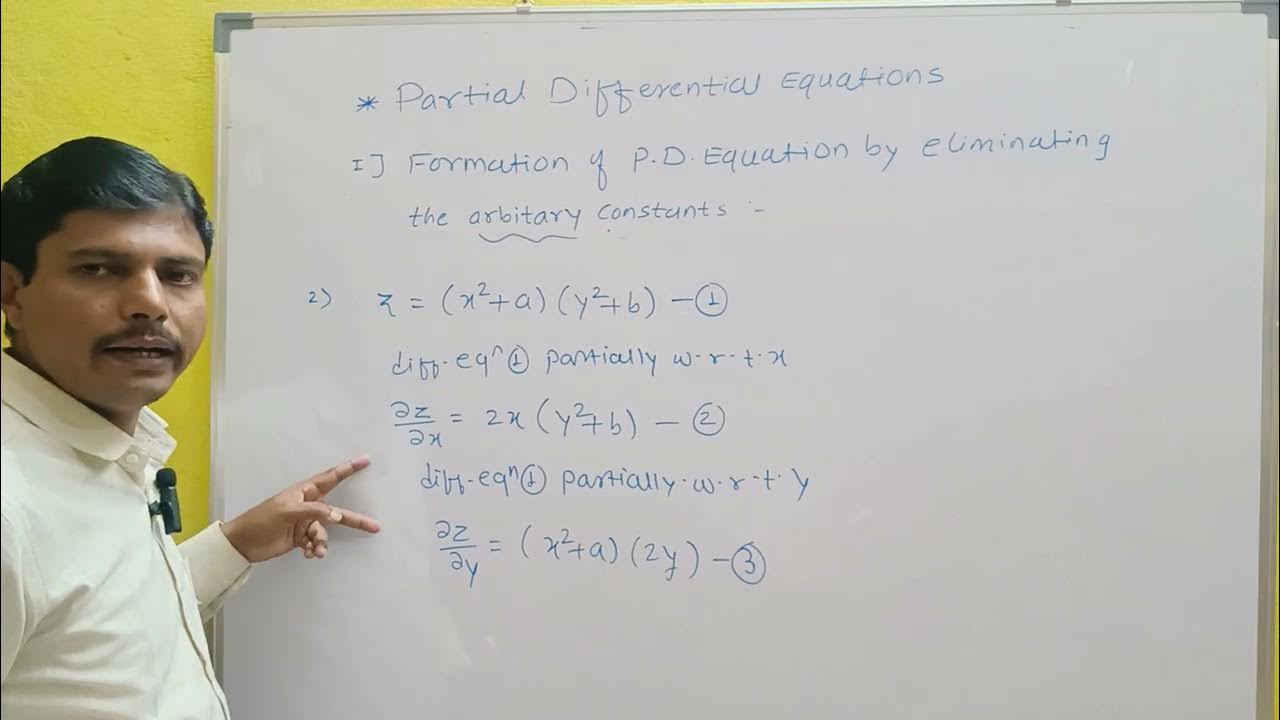 * Partial Differential Equations
I] Formation of P.D. Equation by eliminating
the arbitary constants :-
2) z = (x²+a) (y²+b) — ①
diff. eqⁿ ① partially w.r.t. x
∂z/∂x = 2x (y²+b) — ②
diff. eqⁿ ① partially. w.r.t. y
∂z/∂y = (x²+a) (2y) — ③